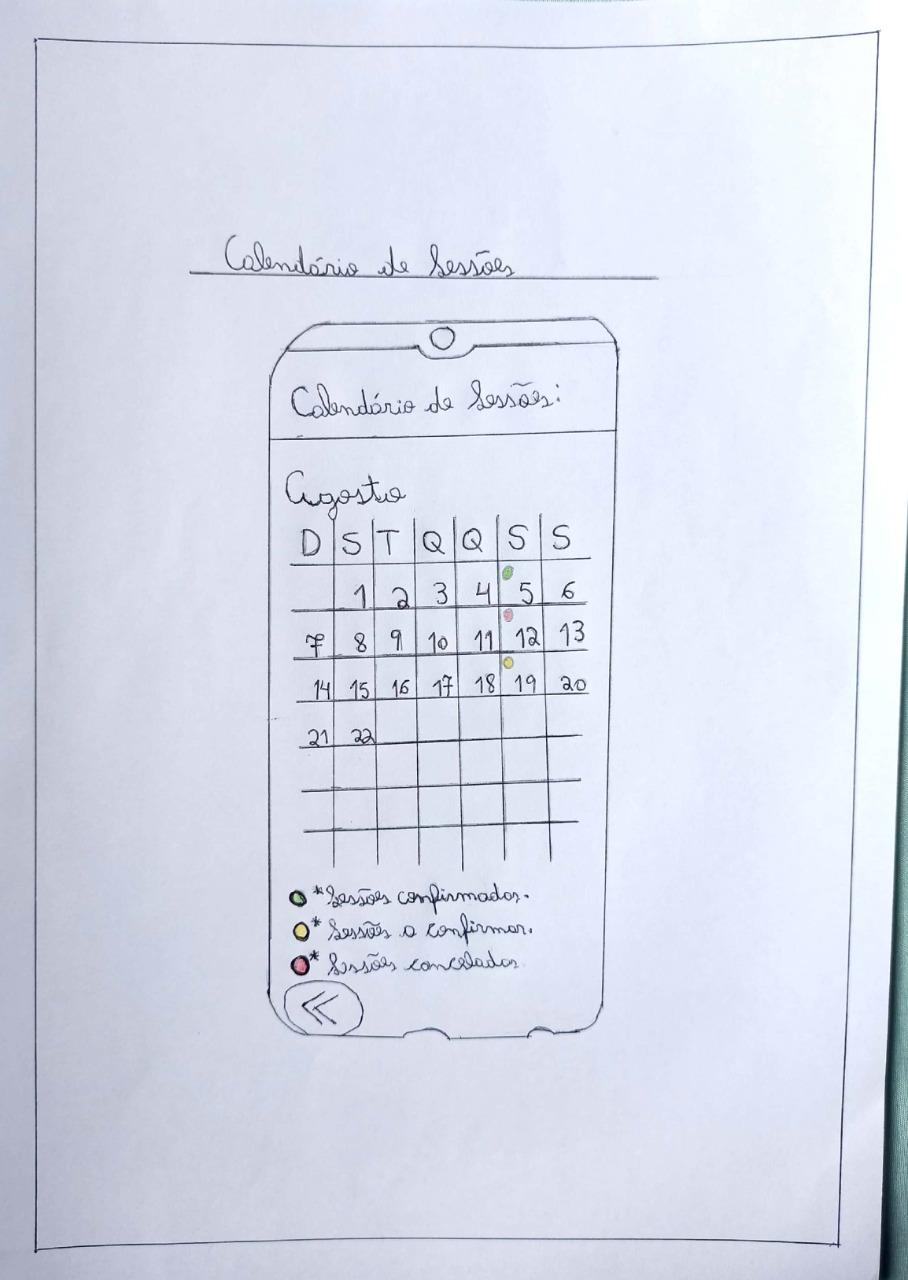 Calendário de Sessões
Calendário de Sessões:
Agosto
D S T Q Q S S
1 2 3 4 5 6
7 8 9 10 11 12 13
14 15 16 17 18 19 20
21 22
* Sessões confirmadas.
* Sessões a confirmar.
* Sessões canceladas.